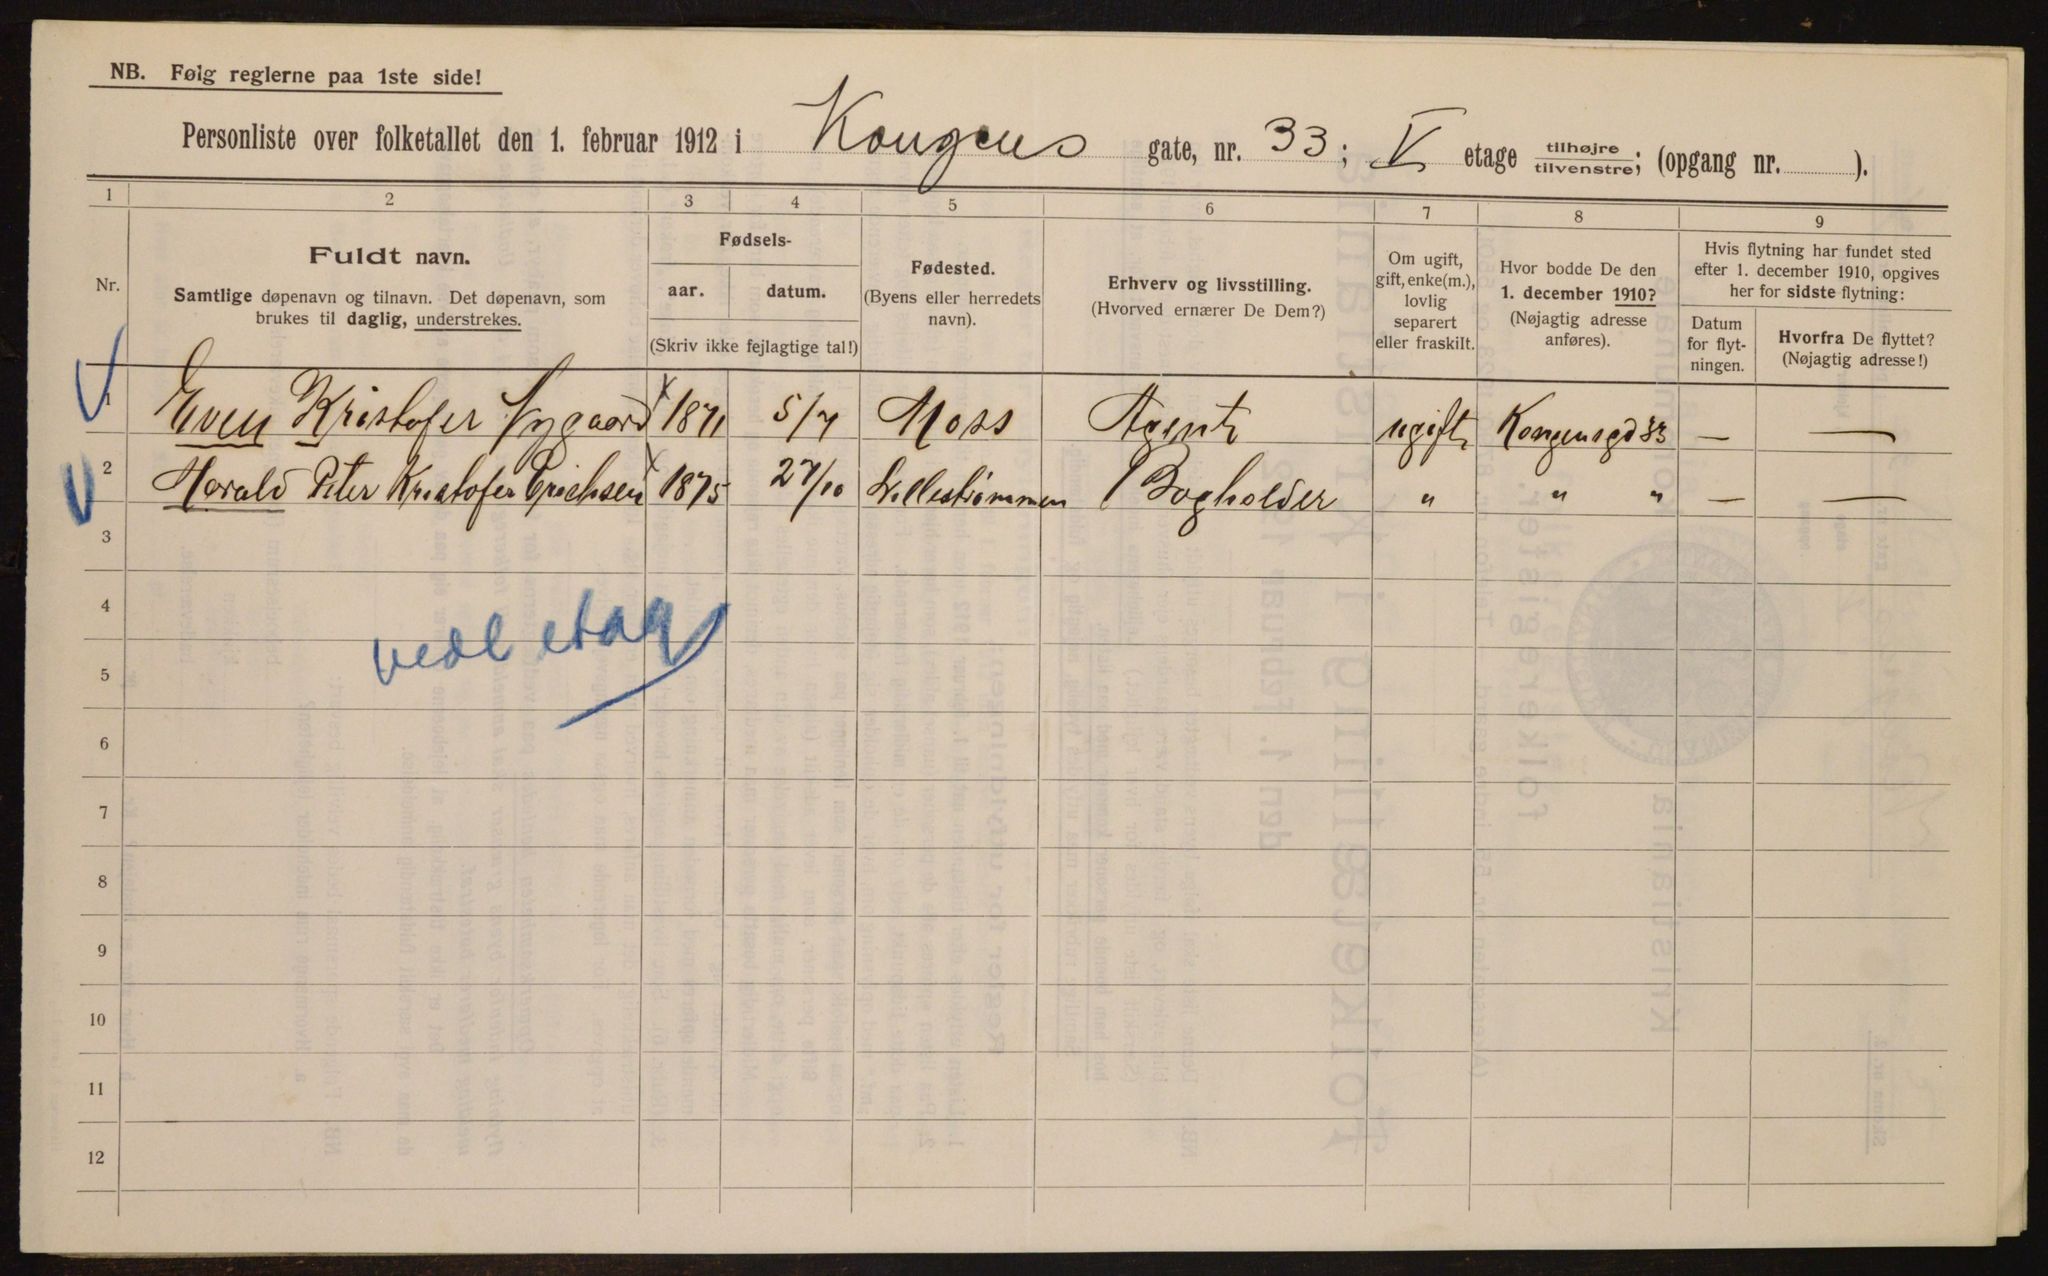 NB. Følg reglerne paa 1ste side!
Personliste over folketallet den 1. februar 1912 i Kongens gate, nr. 33; V etage tilhøjre/tilvenstre; (opgang nr. ).
1 2 3 4 5 6 7 8 9
Nr.
Fuldt navn.
Samtlige døpenavn og tilnavn. Det døpenavn, som
brukes til daglig, understrekes.
Fødsels-
aar. datum.
(Skriv ikke fejlagtige tal!)
Fødested.
(Byens eller herredets
navn).
Erhverv og livsstilling.
(Hvorved ernærer De Dem?)
Om ugift,
gift, enke(m.),
lovlig
separert
eller fraskilt.
Hvor bodde De den
1. december 1910?
(Nøjagtig adresse
anføres).
Hvis flytning har fundet sted
efter 1. december 1910, opgives
her for sidste flytning:
Datum
for flyt-
ningen.
Hvorfra De flyttet?
(Nøjagtig adresse!)
1 Even Kristofer Nygaard x 1871 5/7 Moss Agent ugift Kongensgd 33 — —
2 Harald Peter Kristofer Erichsen x 1875 27/10 Lillestrømmen Bogholder " " " — —
3
4
vedl etag
5
6
7
8
9
10
11
12